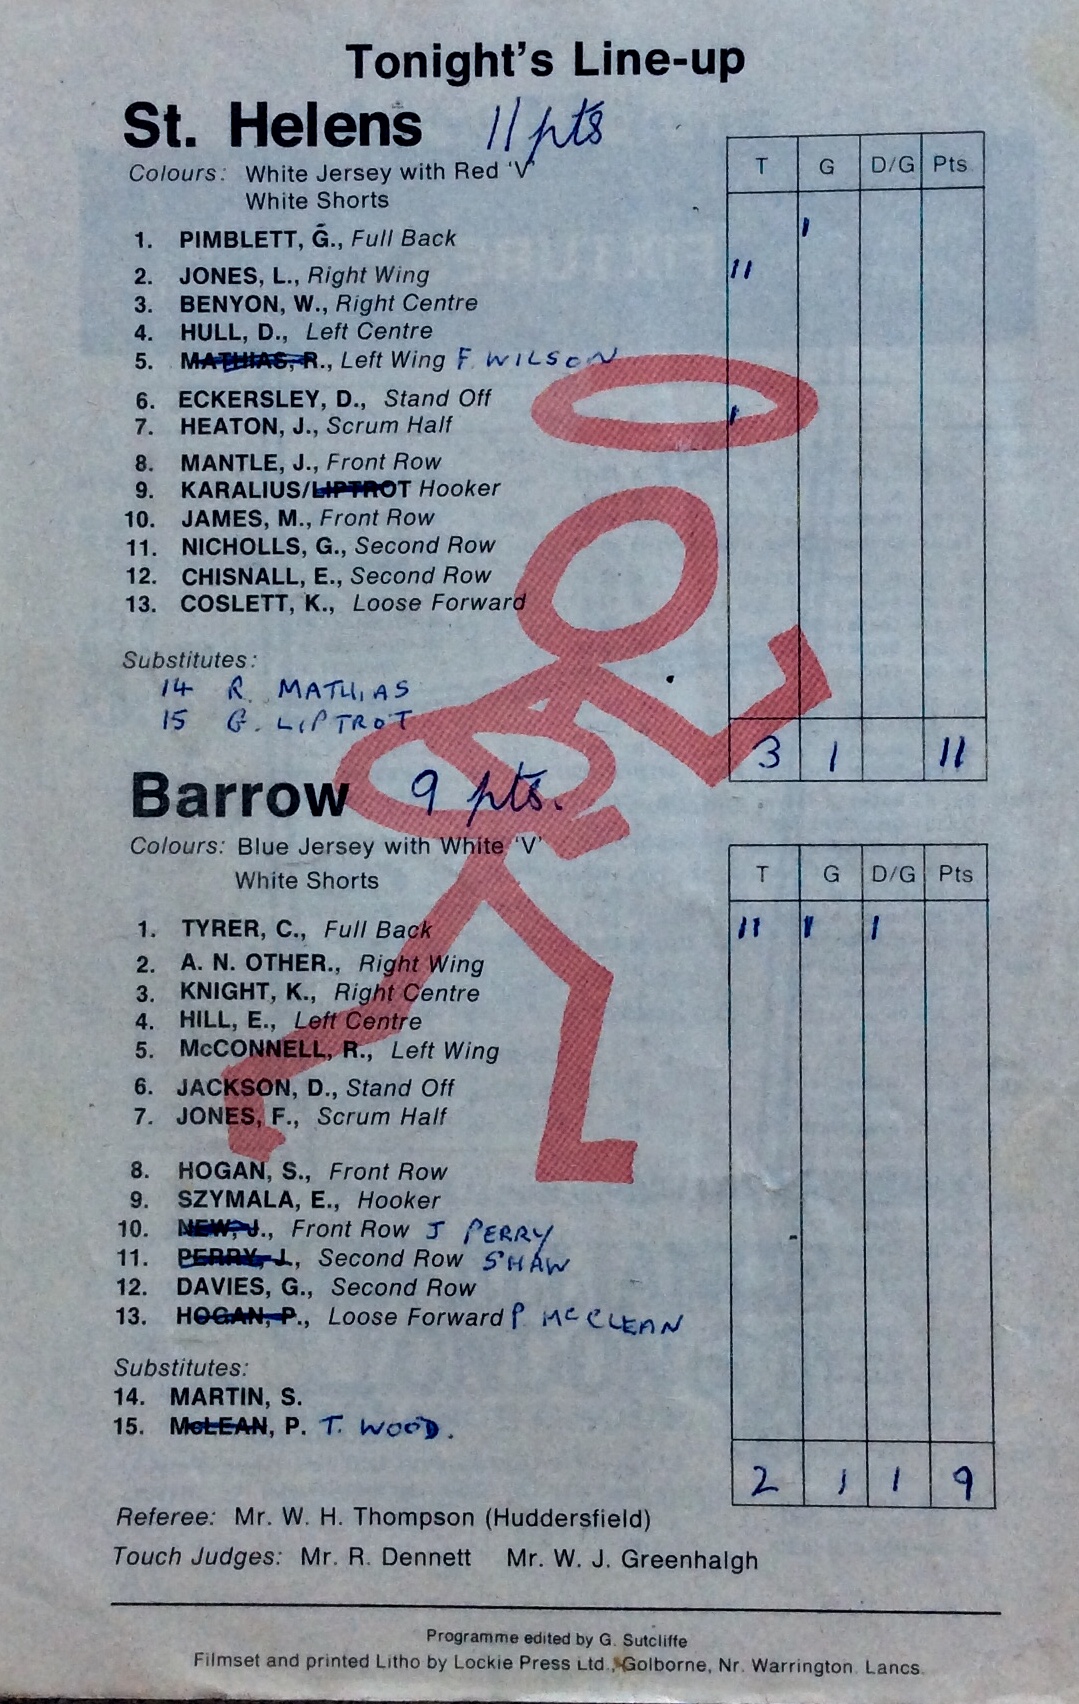 Tonight's Line-up
St. Helens 11 pts
Colours: White Jersey with Red 'V'
White Shorts
T G D/G Pts
1. PIMBLETT, G., Full Back 1
2. JONES, L., Right Wing 11
3. BENYON, W., Right Centre
4. HULL, D., Left Centre
5. MATHIAS, R., Left Wing F. WILSON
6. ECKERSLEY, D., Stand Off
7. HEATON, J., Scrum Half 1
8. MANTLE, J., Front Row
9. KARALIUS/LIPTROT Hooker
10. JAMES, M., Front Row
11. NICHOLLS, G., Second Row
12. CHISNALL, E., Second Row
13. COSLETT, K., Loose Forward
Substitutes:
14 R. MATHIAS
15 G. LIPTROT
3 1 11
Barrow 9 pts.
Colours: Blue Jersey with White 'V'
White Shorts
T G D/G Pts
1. TYRER, C., Full Back 11 1 1
2. A. N. OTHER., Right Wing
3. KNIGHT, K., Right Centre
4. HILL, E., Left Centre
5. McCONNELL, R., Left Wing
6. JACKSON, D., Stand Off
7. JONES, F., Scrum Half
8. HOGAN, S., Front Row
9. SZYMALA, E., Hooker
10. NEW, J., Front Row J PERRY
11. PERRY, J., Second Row SHAW
12. DAVIES, G., Second Row
13. HOGAN, P., Loose Forward P. McCLEAN
Substitutes:
14. MARTIN, S.
15. McLEAN, P. T. WOOD.
2 1 1 9
Referee: Mr. W. H. Thompson (Huddersfield)
Touch Judges: Mr. R. Dennett Mr. W. J. Greenhalgh
Programme edited by G. Sutcliffe
Filmset and printed Litho by Lockie Press Ltd., Golborne, Nr. Warrington. Lancs.